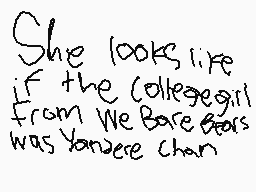 She looks like
if the collegegirl
from We Bare Bears
was Yandere chan